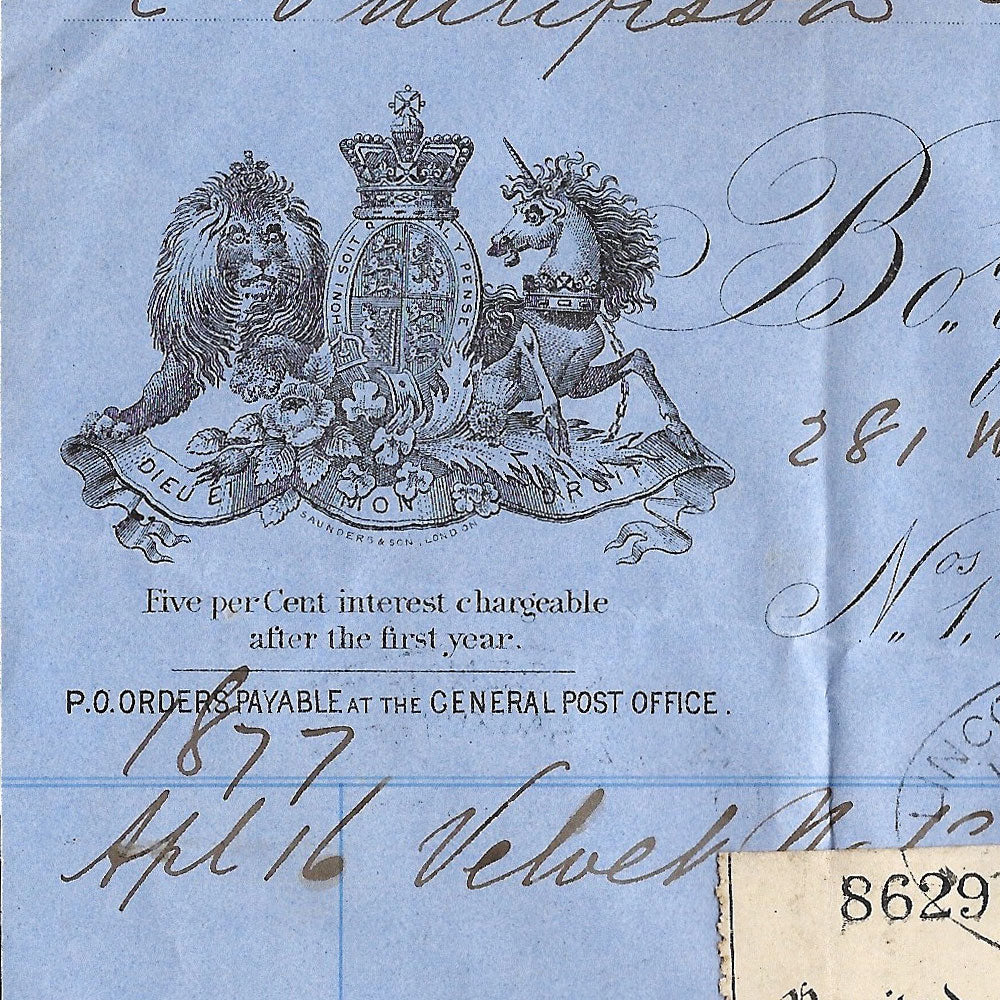 HONI SOIT Q ALY PENSE
DIEU E MON DROIT
SAUNDERS & SON, LONDON
Five per Cent interest chargeable
after the first year.
P.O. ORDERS PAYABLE AT THE GENERAL POST OFFICE.
Bo.
281 W
Nos 1.
1877
Apl 16 Velvet
LINCO
86297